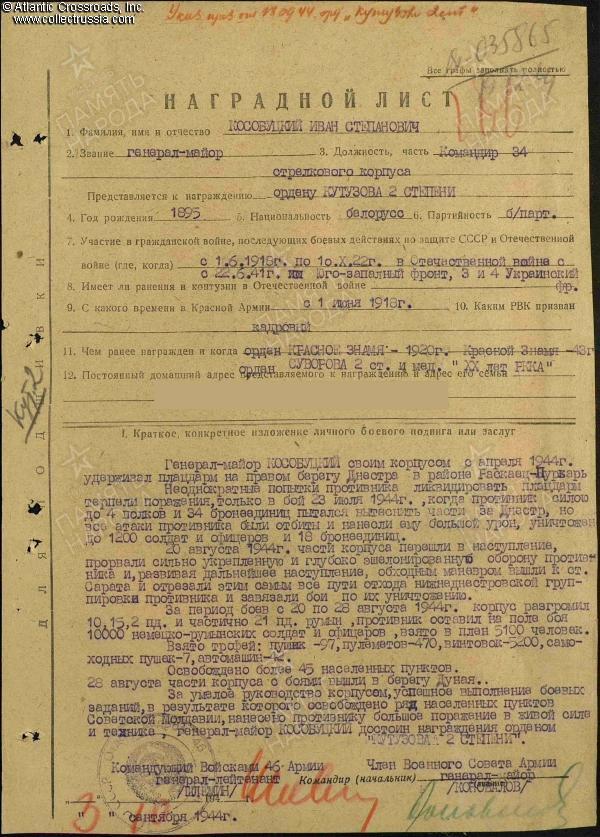 © Atlantic Crossroads, Inc.
www.collectrussia.com
Указ през от 18 09 44. орд. "Кутузова 2 ст."
035865
Все графы заполнять полностью
НАГРАДНОЙ ЛИСТ
1. Фамилия, имя и отчество КОСОБУЦКИЙ ИВАН СТЕПАНОВИЧ
2. Звание генерал-майор 3. Должность, часть Командир 34
стрелкового корпуса
Представляется к награждению ордену КУТУЗОВА 2 СТЕПЕНИ
4. Год рождения 1895 5. Национальность белорусс 6. Партийность б/парт.
7. Участие в гражданской войне, последующих боевых действиях по защите СССР и Отечественной
войне (где, когда) с 1.6.1918г. по 1о.X.22г. в Отечественной война с
с 22.6.41г. Юго-запалный фронт, 3 и 4 Украинский
8. Имеет ли ранения и контузии в Отечественной войне фр.
9. С какого времени в Красной Армии с 1 июня 1918г. 10. Каким РВК призван
кадровый
11. Чем ранее награжден и когда орден КРАСНОЕ ЗНАМЯ - 1920г. Красной Знамя -43г
орден СУВОРОВА 2 ст. и мед. "XX лет РККА"
12. Постоянный домашний адрес представляемого к награждению и адрес его семьи
I. Краткое, конкретное изложение личного боевого подвига или заслуг
Генерал-майор КОСОБУЦКИЙ своим корпусом с апреля 1944г.
удерживал плацдарм на правом берегу Днестра в районе Раскаец-Пуркарь
Неоднократные попытки противника ликвидировать плацдарм
терпели поражения, только в бой 23 июля 1944г., когда противник силою
до 4 полков и 34 бронеединиц пытался вытеснить части за Днестр, но
все атаки противника были отбиты и нанесли ему большой урон, уничтожен
до 1200 солдат и офицеров и 18 бронеединиц.
20 августа 1944г. части корпуса перешли в наступление,
прорвали сильно укрепленную и глубоко эшелонированную оборону против-
ника и, развивая дальнейшее наступление, обходным маневром вышли к ст.
Сарата и отрезали этим самым все пути отхода нижнеднестровской груп-
пировки противника и завязали бои по их уничтожению.
За период боев с 20 по 28 августа 1944г. корпус разгромил
10,15,2 пд. и частично 21 пд. румын, противник оставил на поле боя
10000 немецко-румынских солдат и офицеров, взято в плен 5100 человек.
Взято трофей: пушик -97, пулеметов-470, винтовок-5200, само-
ходных пушек-7, автомашин-42.
Освобождено более 45 населенных пунктов.
28 августа части корпуса с боями вышли в берегу Дуная..
За умелое руководство корпусом, успешное выполнение боевых
заданий, в результате которого освобождено ряд населенных пунктов
Советской Молдавии, нанесено противнику большое поражение в живой силе
и технике, генерал-майор КОСОБУЦКИЙ достоин награждения орденом
"КУТУЗОВА 2 СТЕПЕНИ".
Командующий Войсками 46 Армии
генерал-лейтенант
/ШЛЕМИН/
Член Военного Совета Армии
генерал-майор
/КОНОВАЛОВ/
Командир (начальник)
сентября 1944г.
ДЛЯ ПОДШИВКИ
ПАМЯТЬ НАРОДА